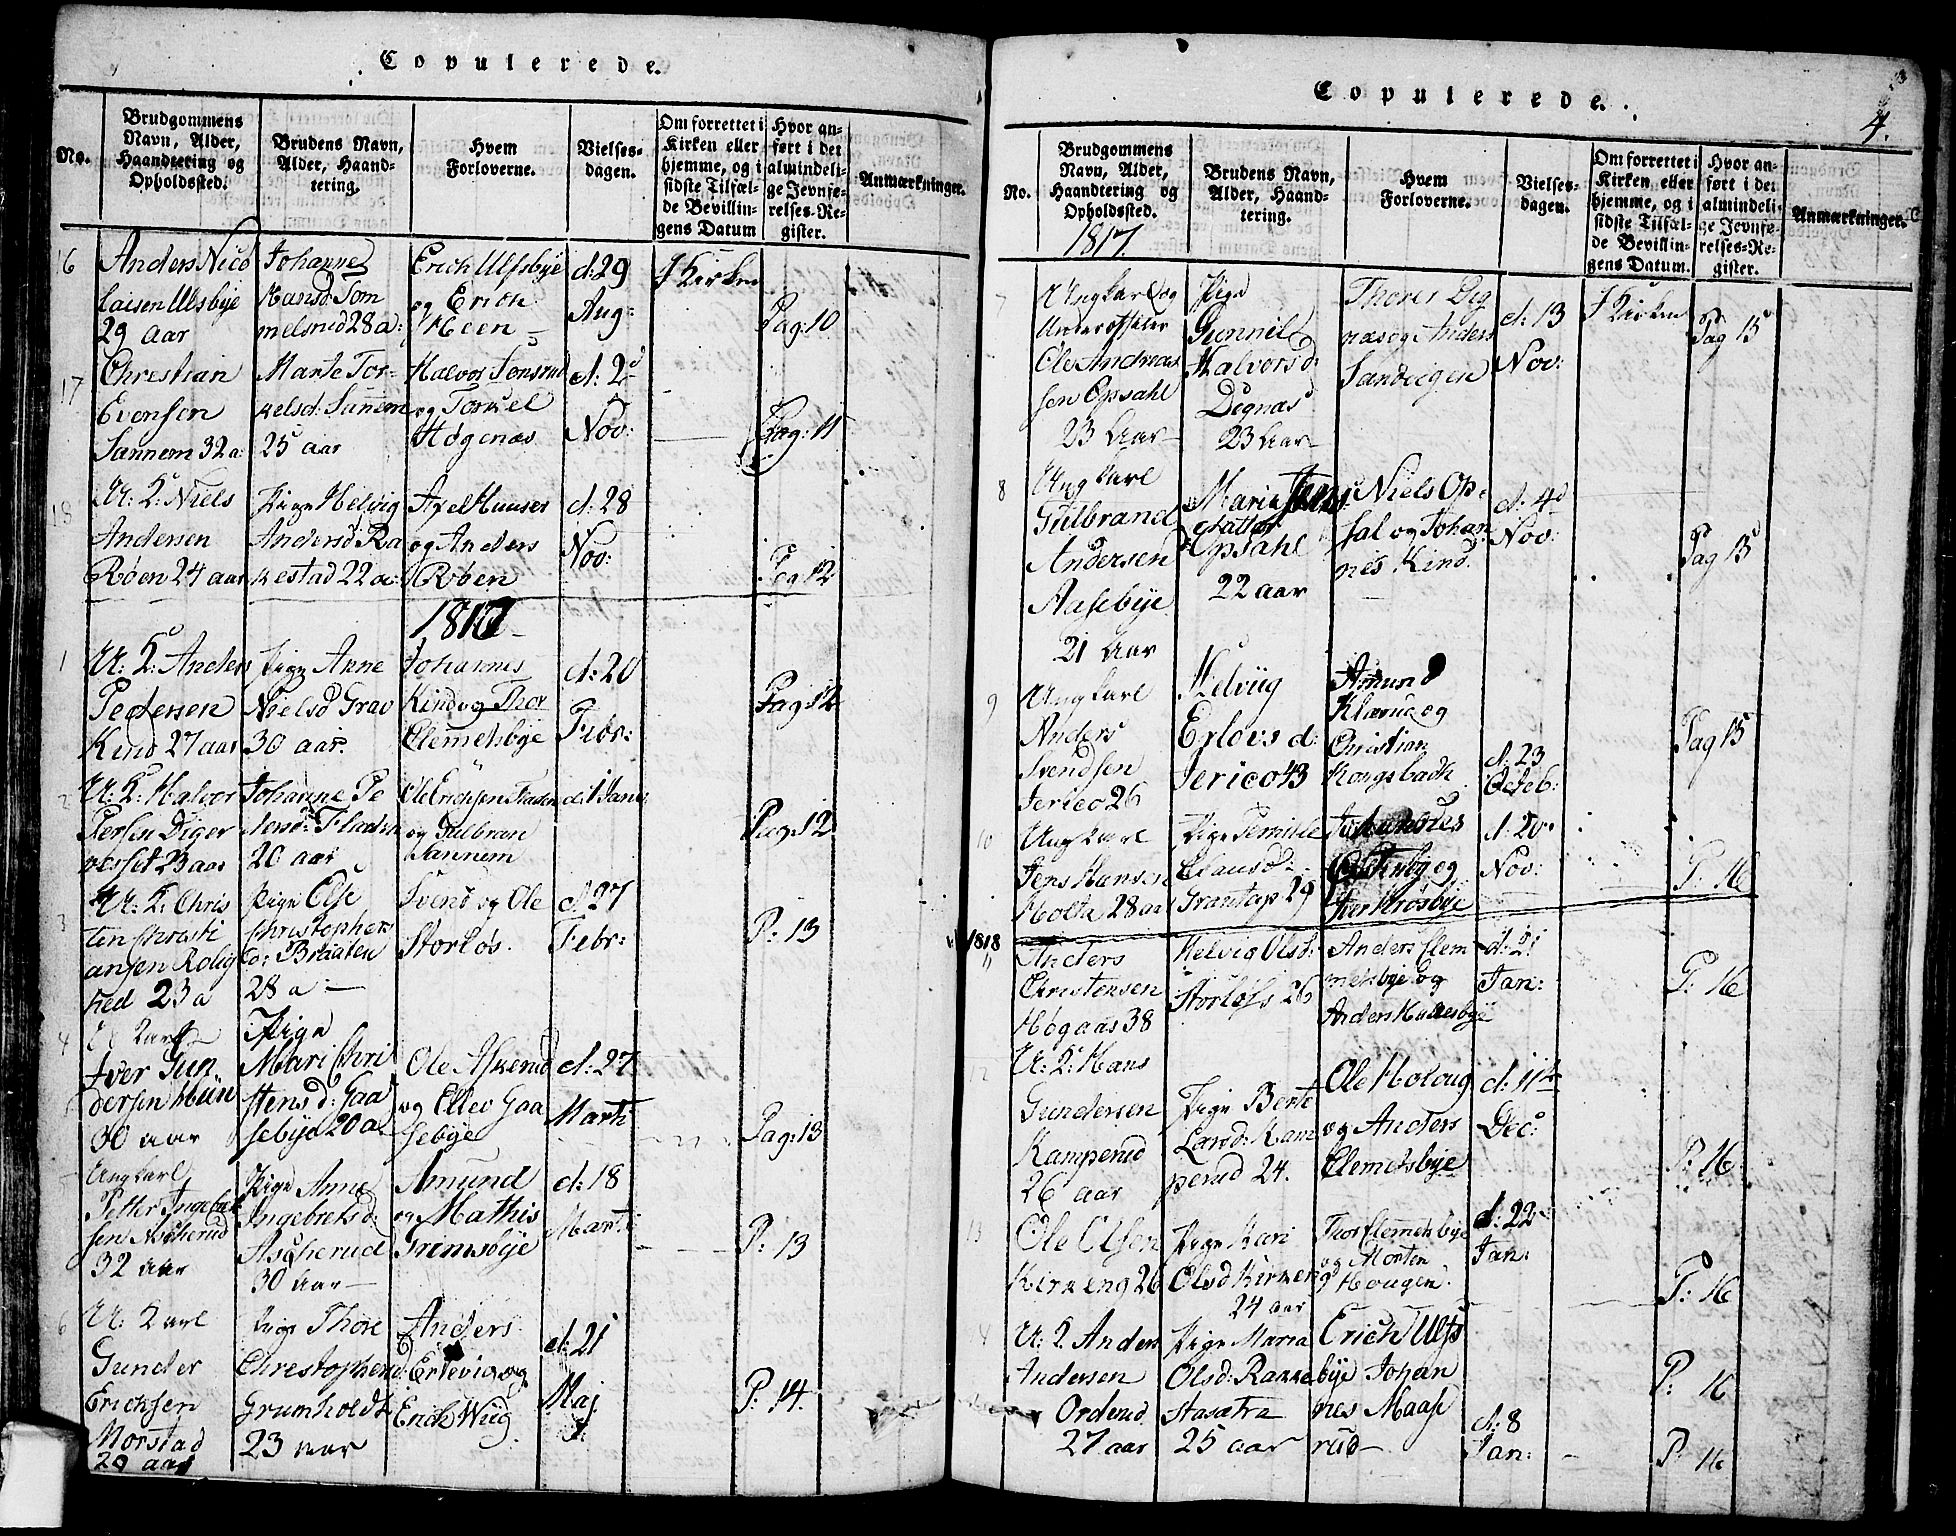 Copulerede.
No.
Brudgommens
Navn, Alder,
Haandtering og
Opholdssted.
Brudens Navn,
Alder, Haand-
tering.
Hvem
Forloverne.
Vielses-
dagen.
Om forrettet i
Kirken eller
hjemme, og i
sidste Tilfæl-
de Bevillin-
gens Datum
Hvor an-
ført i det
almindeli-
ge Jevnfø-
relses-Re-
gister.
Anmærkninger.
16
Anders Nico
laisen Ulsbye
29 aar
Johanne
Hansd Tom
melsrud 28 a:
Erich Ulfsbye
og Erich
Heen
d: 29
Aug:
I Kirken
Pag: 10
17
Chrestian
Evensen
Sannem 32 a:
Marte Tor-
kelsd: Sannem
25 aar
Halvor Tonsrud
og Torkel
Høgenæs
d: 2d
Nov:
Pag: 11
18
U: K: Niels
Andersen
Røen 24 aar
Pige Helvig
Andersd Ra
kestad 22 a:
Axel Huuser
og Anders
Røen
d: 28
Nov:
Pag: 12
1817
1
U: K: Anders
Pedersen
Kind 27 aar
Pige Anne
Nielsd Grav
30 aar.
Johannes
Kind og Thor
Clemetsbye
d: 20
Febr:
Pag: 12
2
U: K: Halvor
Persen Diger
nesset 23 aar
Johanne Pe
dersd: Fladen
20 aar
Ole Erichsen Fladen
og Gulbran
Sannem
d: 1 Janu
Pag: 12
3
U: K: Chris
ten Christi
ansen Rolig
hed 23 a
Pige Else
Christophers
d: Braaten
28 a
Svend og Ole
Storløs.
d 27
Febr:
P: 13
4
U: Karl
Iver Gun
dersen Hün
30 aar
Pige
Mari Chri
stensd: Gaa
sebye 20 a
Ole Askerud
og Ellev Gaa
sebye
d: 27
Marti
Pag: 13
Ung karl
Petter Ingebret
sen Ascherud
32 aar
Pige Anne
Ingebretsd:
Ascherud
30 Aar
Amund
og Mathis
Grimsbye
d: 18
Mart:
P: 13
6
U: Karl
Gunder
Erichsen
Morstad
29 aar
Pige Thore
Chrestophersd:
Grumholdt
23 aar
Anders
Ertevig og
Erich Wiig
d: 21
Maj
P: 14.
Copulerede.
4.
No.
Brudgommens
Navn, Alder,
Haandtering og
Opholdssted.
1817.
Brudens Navn,
Alder, Haand-
tering.
Hvem
Forloverne.
Vielses-
dagen.
Om forrettet i
Kirken eller
hjemme, og i
sidste Tilfæl-
de Bevillin-
gens Datum.
Hvor an-
ført i det
almindeli-
ge Jevnfø-
relses-Re-
gister.
Anmærkninger.
7
Ung karl og
Underofficer
Ole Andreas
sen Opsahl
23 Aar
Pige
Gunnil
Halvorsd:
Degnæs
23 Aar
Thores Deg
næs og Anders
Sandvigen
d: 13
Nov:
I Kirken
Pag 15
8
Ung karl
Gulbrand
Andersen
Aasebye
21 Aar
Maria Jens
datter
Opsahl
22 aar
Niels Op-
sal og Johan
nes Kind.
d: 4d
Nov:
Pag 15
9
Ung karl
Anders
Svendsen
Jerico 26
Helvig
Erlovs d:
Jerico 43
Amund
Klærud og
Christian
Kongsbach
d: 23
Octob:
Pag 15
10
Ung karl
Jens Hansen
Holta 28 aar
Pige Pernille
Clausd:
Grantop 29
Johannes
og
Iver Krosbye
d: 20
Nov:
P: 16
1818
11
Anders
Christensen
Høgaas 38
Helvig Olsd:
Storløfs 26
Anders Clem
metsbye og
Anders Huttesbye
d: 2
Jan:
P: 16
12
U: K: Hans
Gundersen
Kamperud
26 aar
Pige Berte
Larsd: Kam
perud 24.
Ole Holoug
og Anders
Clemetsbye
d: 11te
Dec:
P: 16
13
Ole Olsen
Kirkeng 26
Pige Kari
Olsd Kirkeng
24 aar
Thor Clemmetsbye
og Morten
Hougen
d: 22
Jan:
P: 16
14
U: K Anders
Andersen
Orderud
27 aar
Pige Maria
Olsd: Rakke
stasætra
25 aar
Erich Ulfs
bye Johan
nes Maase
rud
d: 8
Jan:
P: 16
P: 16